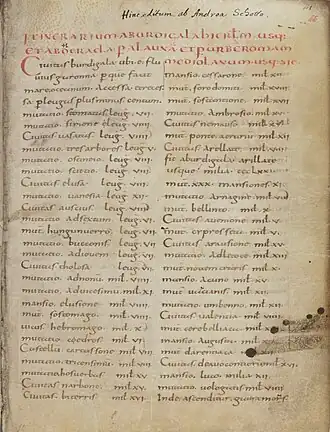 Hinc editum ab Andrea Schotto.
ITINERARIUM ABURDIGALA HIERUSALEM USQ;
ET ABHERACLEA PALAULONA ET PURBE ROMAM
MEDIOLANUM USQ; SIC
Civitas burdigala ubi est flu
vius garonna p quē facit
mareoceanum accessa et recessa
sa p leugas plus minus centum.
mutatio stomatas leug. VII
mutatio sirione leug. VIIII
Civitas uasatas leug. VIIII
mutatio tres arbores leug. V
mutatio oscineio leug. VIII
mutatio scittio leug. VIII
Civitas elusa leug. VIII
mutatio uanesia leug. XII
Civitas auscius leug. VIII
mutatio adsextum leug. VI
mut. hungunuerro leug. VII
mutatio bucconis leug. VII
mutatio adiovem leug. VII
Civitas tholosa leug. VII
mutatio adnonū mil VIIII
mutatio aduicesimū mil XI
mansio elusione mil VIIII
mut. sostomago mil VIIII
uicus hebromago mil X
mutatio cedros mil VI
Castellū carcassone mil VIII
mutatio tricensimū mil VIII
mutatio hosuerbas mil XV
Civitas narbone mil XV
Civitas biterris mil XVI
mansio cessarone mil XII
mut. foro domiti mil XVIII
mut. sostantione mil XVII
mutatio ambrosio mil XV
Civitas nemauso mil XV
mut. ponte aerariū mil XII
Civitas arellate mil VIII
fit aburdigala arillate
usque milia CCCLXXI
mut. XXX mansiones XI
mutatio arnagine mil VIII
mut. bellinto mil X
Civitas avenione mil V
mut. cypresseta mil V
Civitas arausione mil XV
mut. adlectoce mil XIII
mut. novemcraris mil X
mansio acuno mil XV
mut. vancianis mil XII
mutatio umbenno mil XII
Civitas valentia mil VIIII
mut. cerebelliaca mil XII
mansio augusta mil X
mut. darentiaca mil XII
Civitas deavocontiorū mil XVI
mansio luco milia XII
mutatio vologatis mil VIIII
Inde ascenditur gauramons